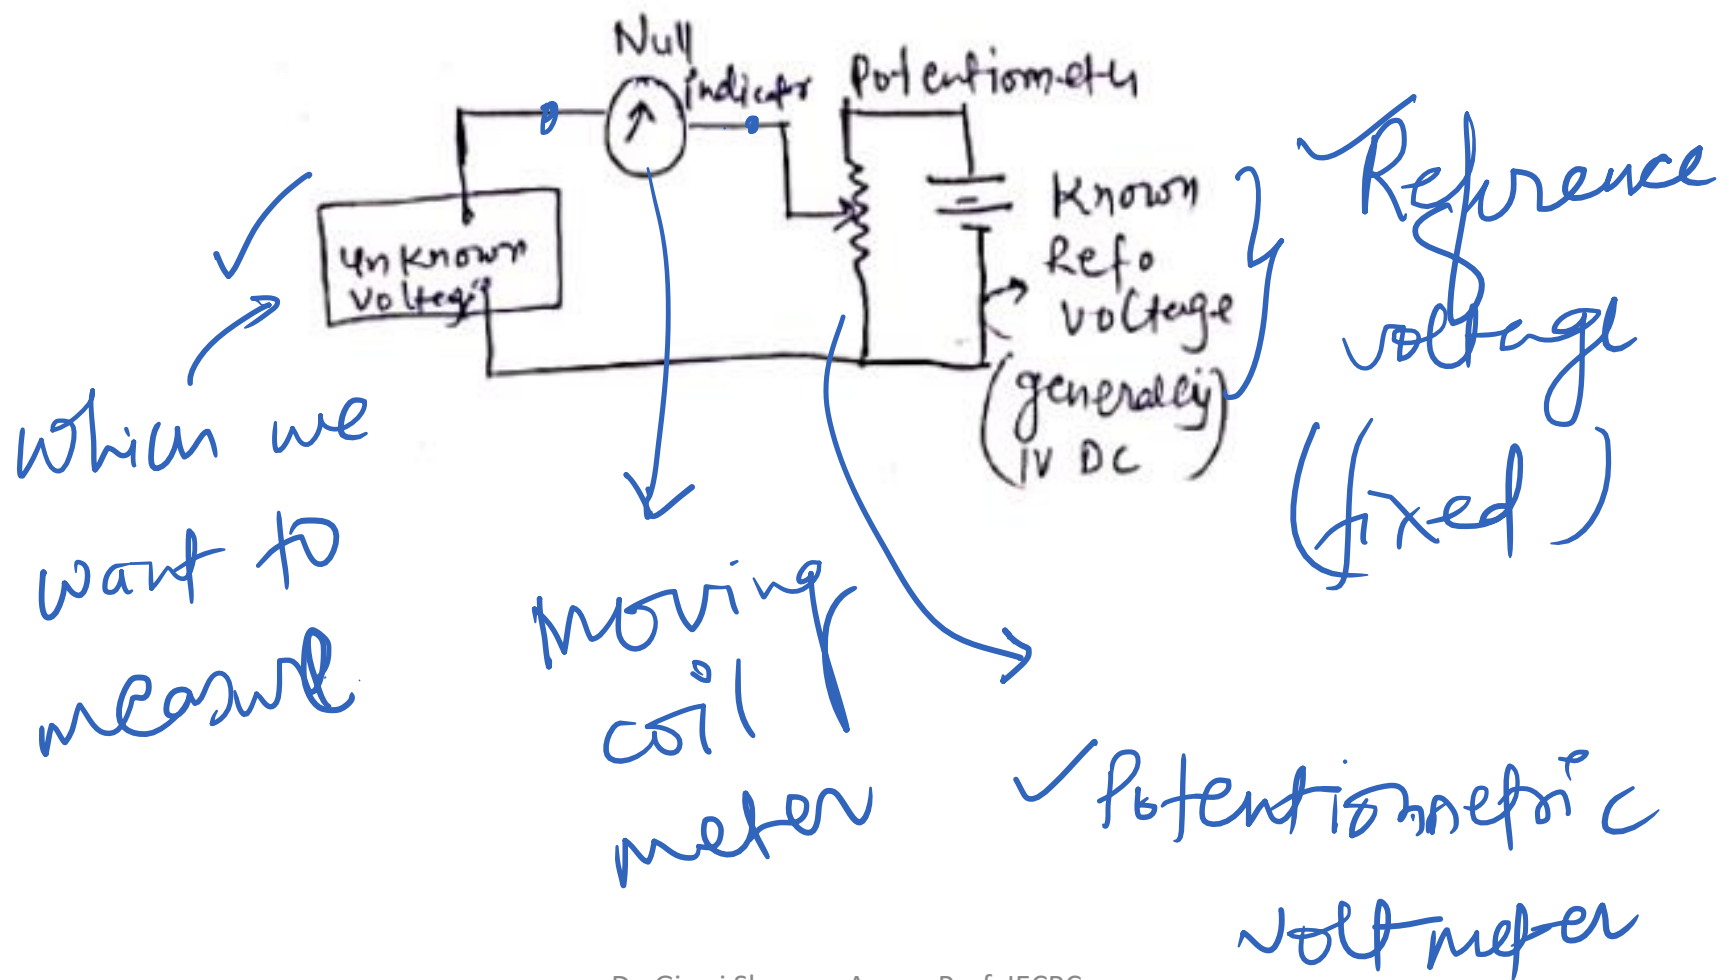 Null
indicator
Potentiometer
Unknown
Voltage
Known
Refo
Voltage
(generally
1V DC)
Reference
voltage
(fixed)
which we
want to
measure
Moving
coil
meter
Potentiometric
voltmeter